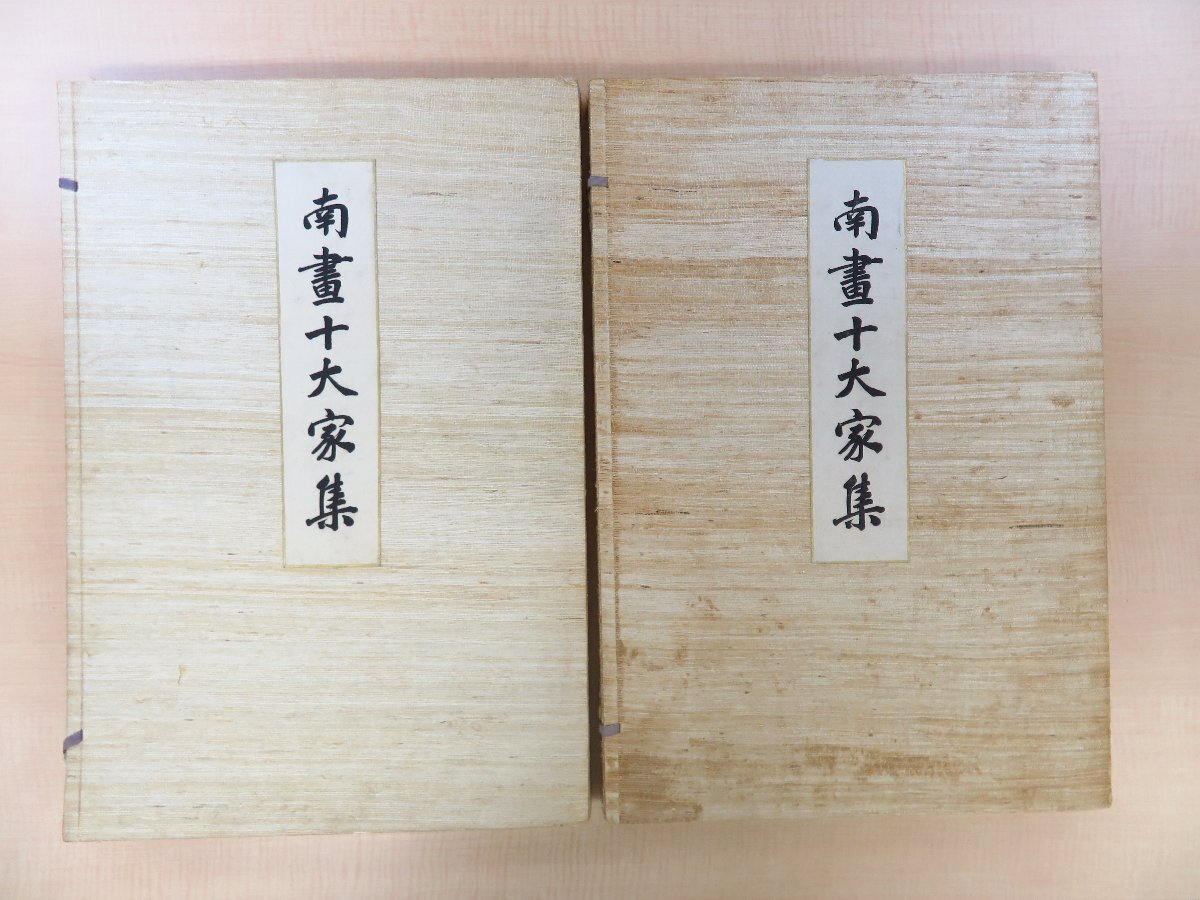 南畫十大家集
南畫十大家集